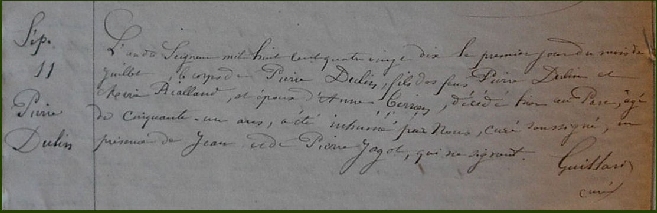 Sép.
11
Pierre
Dulin
L'an du Seigneur mil huit cent quatre vingt dix le premier jour du mois de
juillet, le corps de Pierre Dulin, fils des feus Pierre Dulin et
Marie Balland, et époux d'Anne, décédé au, âgé
de cinquante-un ans, a été inhumé par Nous, curé soussigné, en
présence de Jean et de Pierre Jagot, qui ne signent.
curé